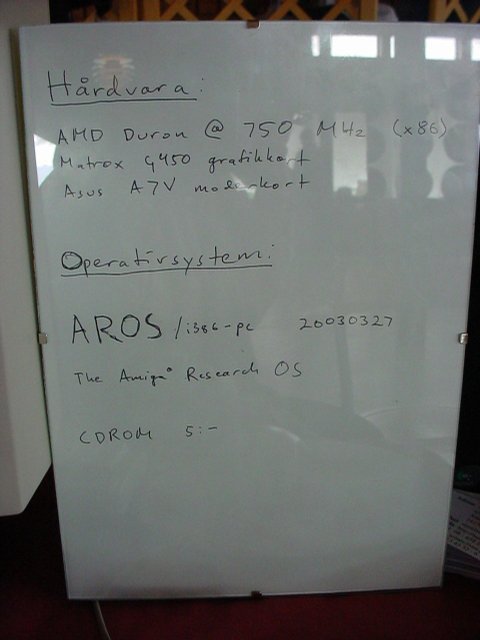 Hårdvara:
AMD Duron @ 750 MHz (x86)
Matrox G450 grafikkort
Asus A7V moderkort
Operativsystem:
AROS /i386-pc 20030327
The Amiga® Research OS
CDROM 5:-